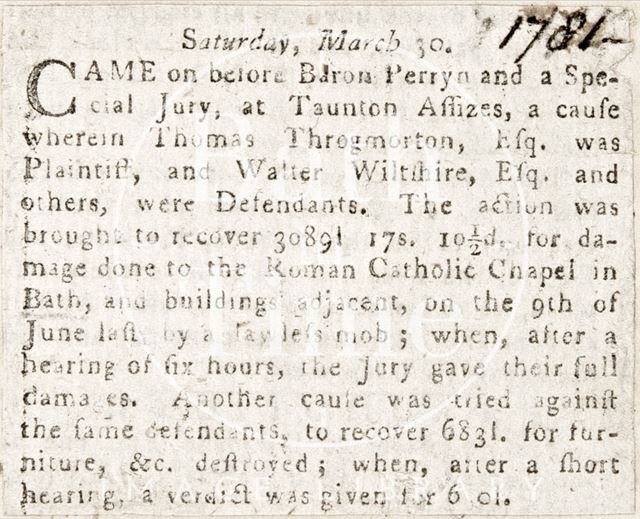 1781-
Saturday, March 30.
CAME on before Baron Perryn and a Spe-
cial Jury, at Taunton Aſſizes, a cauſe
wherein Thomas Throgmorton, Eſq. was
Plaintiff, and Walter Wiltſhire, Eſq. and
others, were Defendants. The action was
brought to recover 3089l 17s. 10½d. for da-
mage done to the Roman Catholic Chapel in
Bath, and buildings adjacent, on the 9th of
June laſt by a lawleſs mob; when, after a
hearing of ſix hours, the Jury gave their full
damages. Another cauſe was tried againſt
the ſame defendants, to recover 683l. for fur-
niture, &c. deſtroyed; when, after a ſhort
hearing, a verdict was given for
IMAGE LIBRARY